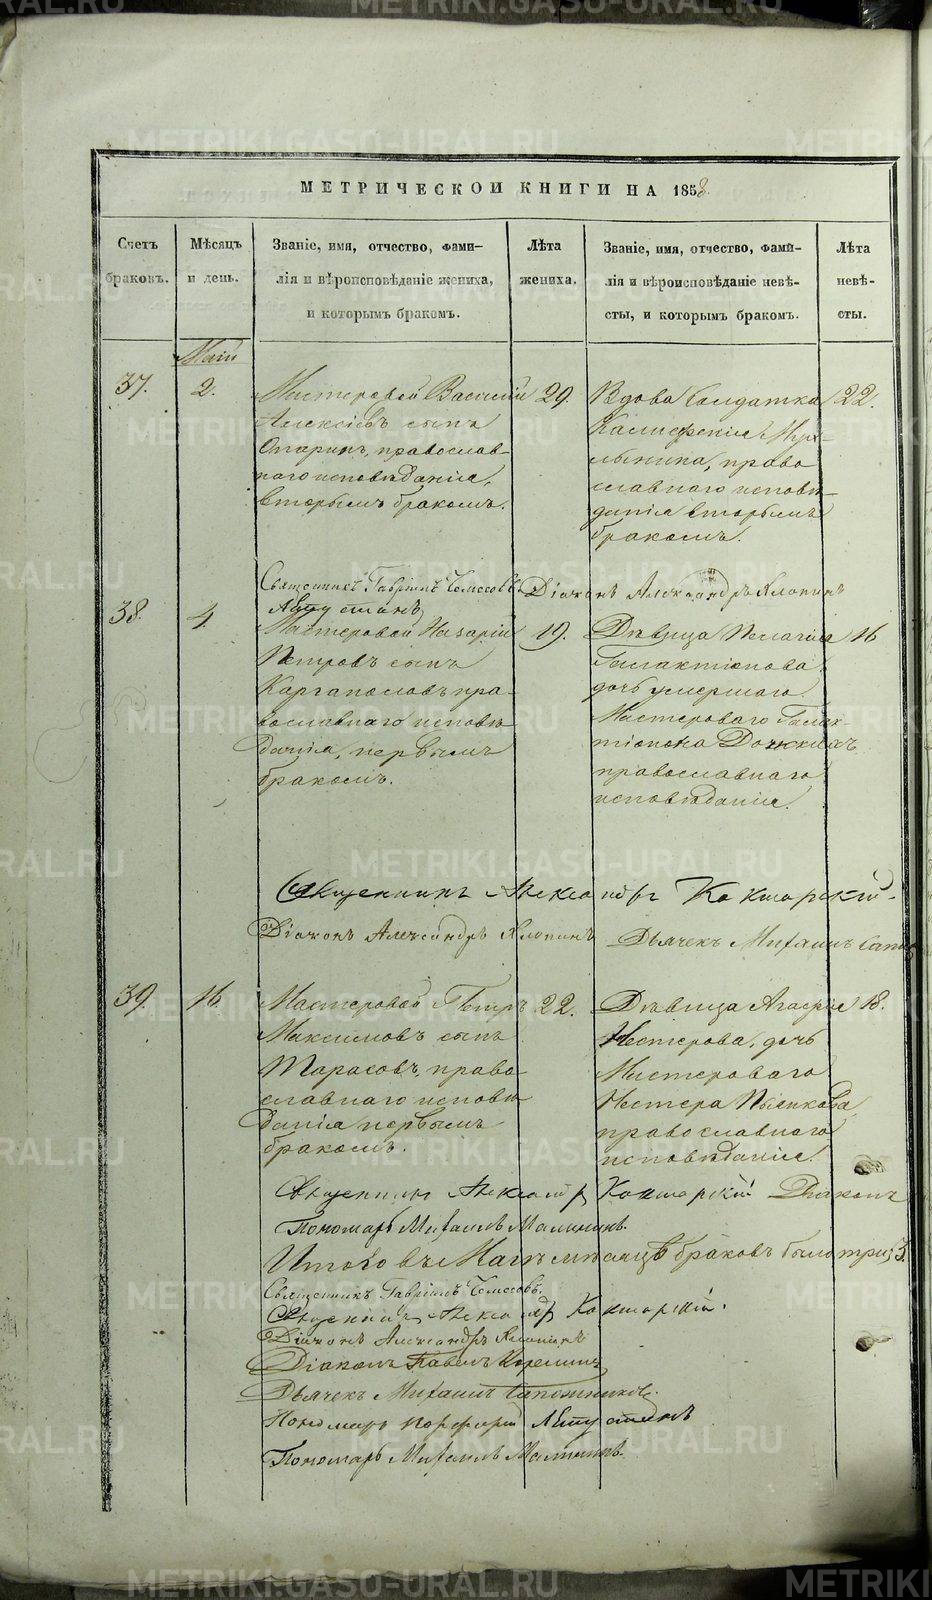 МЕТРИЧЕСКОЙ КНИГИ НА 1858
Счетъ браковъ.
Мѣсяцъ и день.
Званіе, имя, отчество, фами-
лія и вѣроисповѣданіе жениха,
и которымъ бракомъ.
Лѣта жениха.
Званіе, имя, отчество, фами-
лія и вѣроисповѣданіе невѣ-
сты, и которымъ бракомъ.
Лѣта невѣ-
сты.
Май
37.
2.
Мастеровой Василий
Алексѣевъ сынъ
Опаринъ, православ-
наго исповѣданія,
вторымъ бракомъ.
29.
Вдова Солдатка
православнаго исповѣ-
данія вторымъ
бракомъ.
22.
Священникъ Гавріилъ
Діаконъ Александръ Яопинъ
38.
4.
Мастеровой Назарій
Петровъ сынъ
Каргаполовъ пра-
вославнаго исповѣ
данія, первымъ
бракомъ.
19.
Дѣвица Пелагія
Галактіонова
дочь умершаго
Мастероваго Галак-
тіонова
православнаго
исповѣданія.
16
Священникъ Александръ Кокшарскій.
Діаконъ Александръ
Дьячекъ Михаилъ Сапож
39.
16.
Мастеровой Петръ
Максимовъ сынъ
Тарасовъ, право
славнаго исповѣ
данія первымъ
бракомъ.
22.
Дѣвица Агафія
Нестерова, дочь
Мастероваго
Нестера Пьянкова,
православнаго
исповѣданія.
18.
Священникъ Александръ Кокшарскій Діаконъ
Пономарь Михаилъ Малининъ.
Итого въ Маѣ мѣсяцѣ браковъ было три, 3.
Священникъ Гавріилъ
Священникъ Александръ Кокшарскій.
Діаконъ Александръ
Діаконъ Павелъ
Дьячекъ Михаилъ Сапожниковъ.
Пономарь Порфирій Августинъ
Пономарь Михаилъ Малининъ.
METRIKI.GASO-URAL.RU